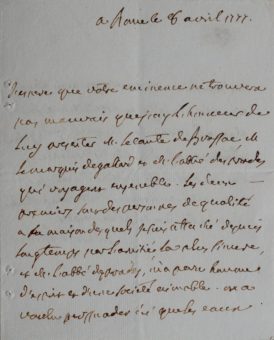 a Rome le 6 avril 1777.
J'espere que votre eminence ne trouvera
pas mauvais que j'aye l'honneur de
luy presenter M. le comte de
le marquis de galard et M. l'abbé des
qui voyagent ensemble. Les deux
premiers sont des personnes de qualité
a la maison desquels je suis attaché depuis
longtemps par l'amitié la plus sincere,
et M. l'abbé m'a paru homme
d'esprit et d'une societé aimable. on a
voulu persuader icy que les eaux